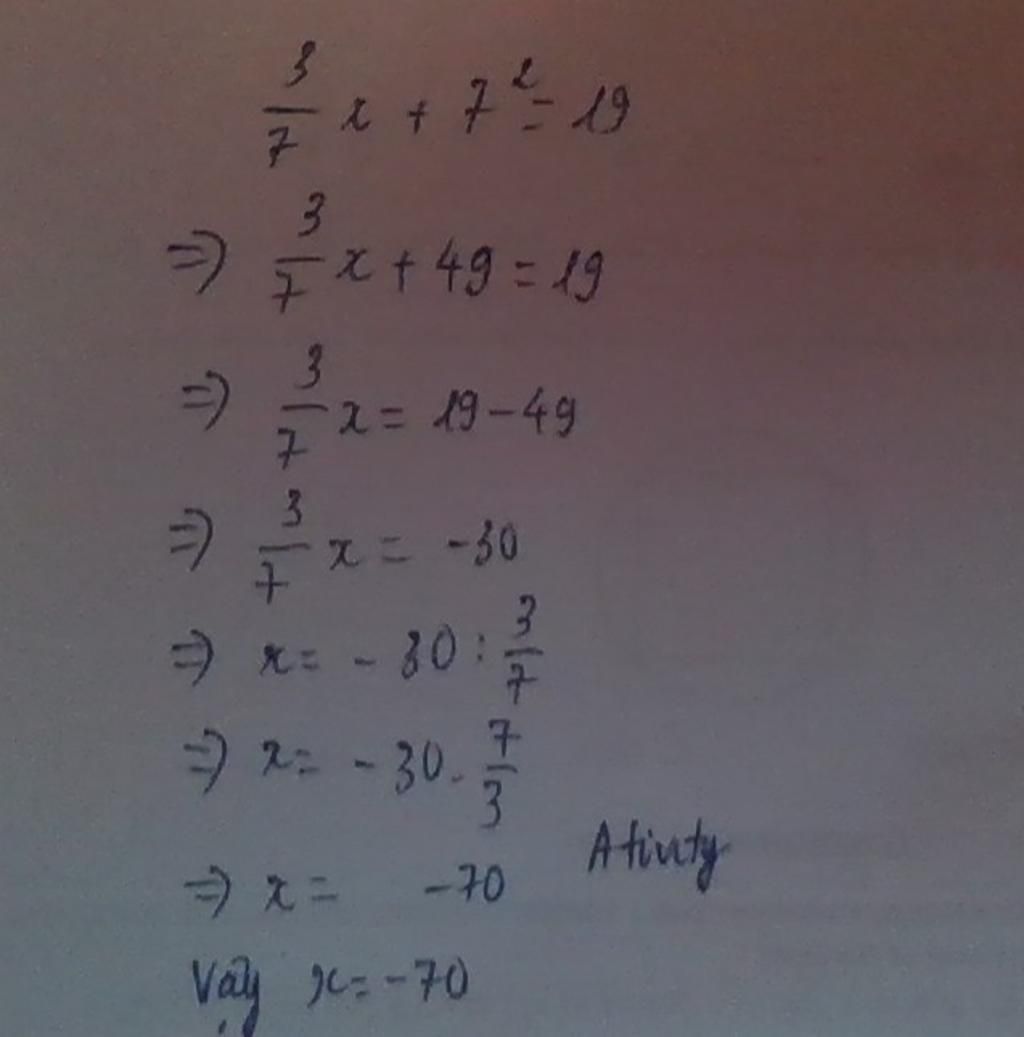 3/7 x + 7² = 19
=> 3/7 x + 49 = 19
=> 3/7 x = 19 - 49
=> 3/7 x = -30
=> x = - 30 : 3/7
=> x = - 30 . 7/3
Afivity
=> x = -70
Vậy x = -70